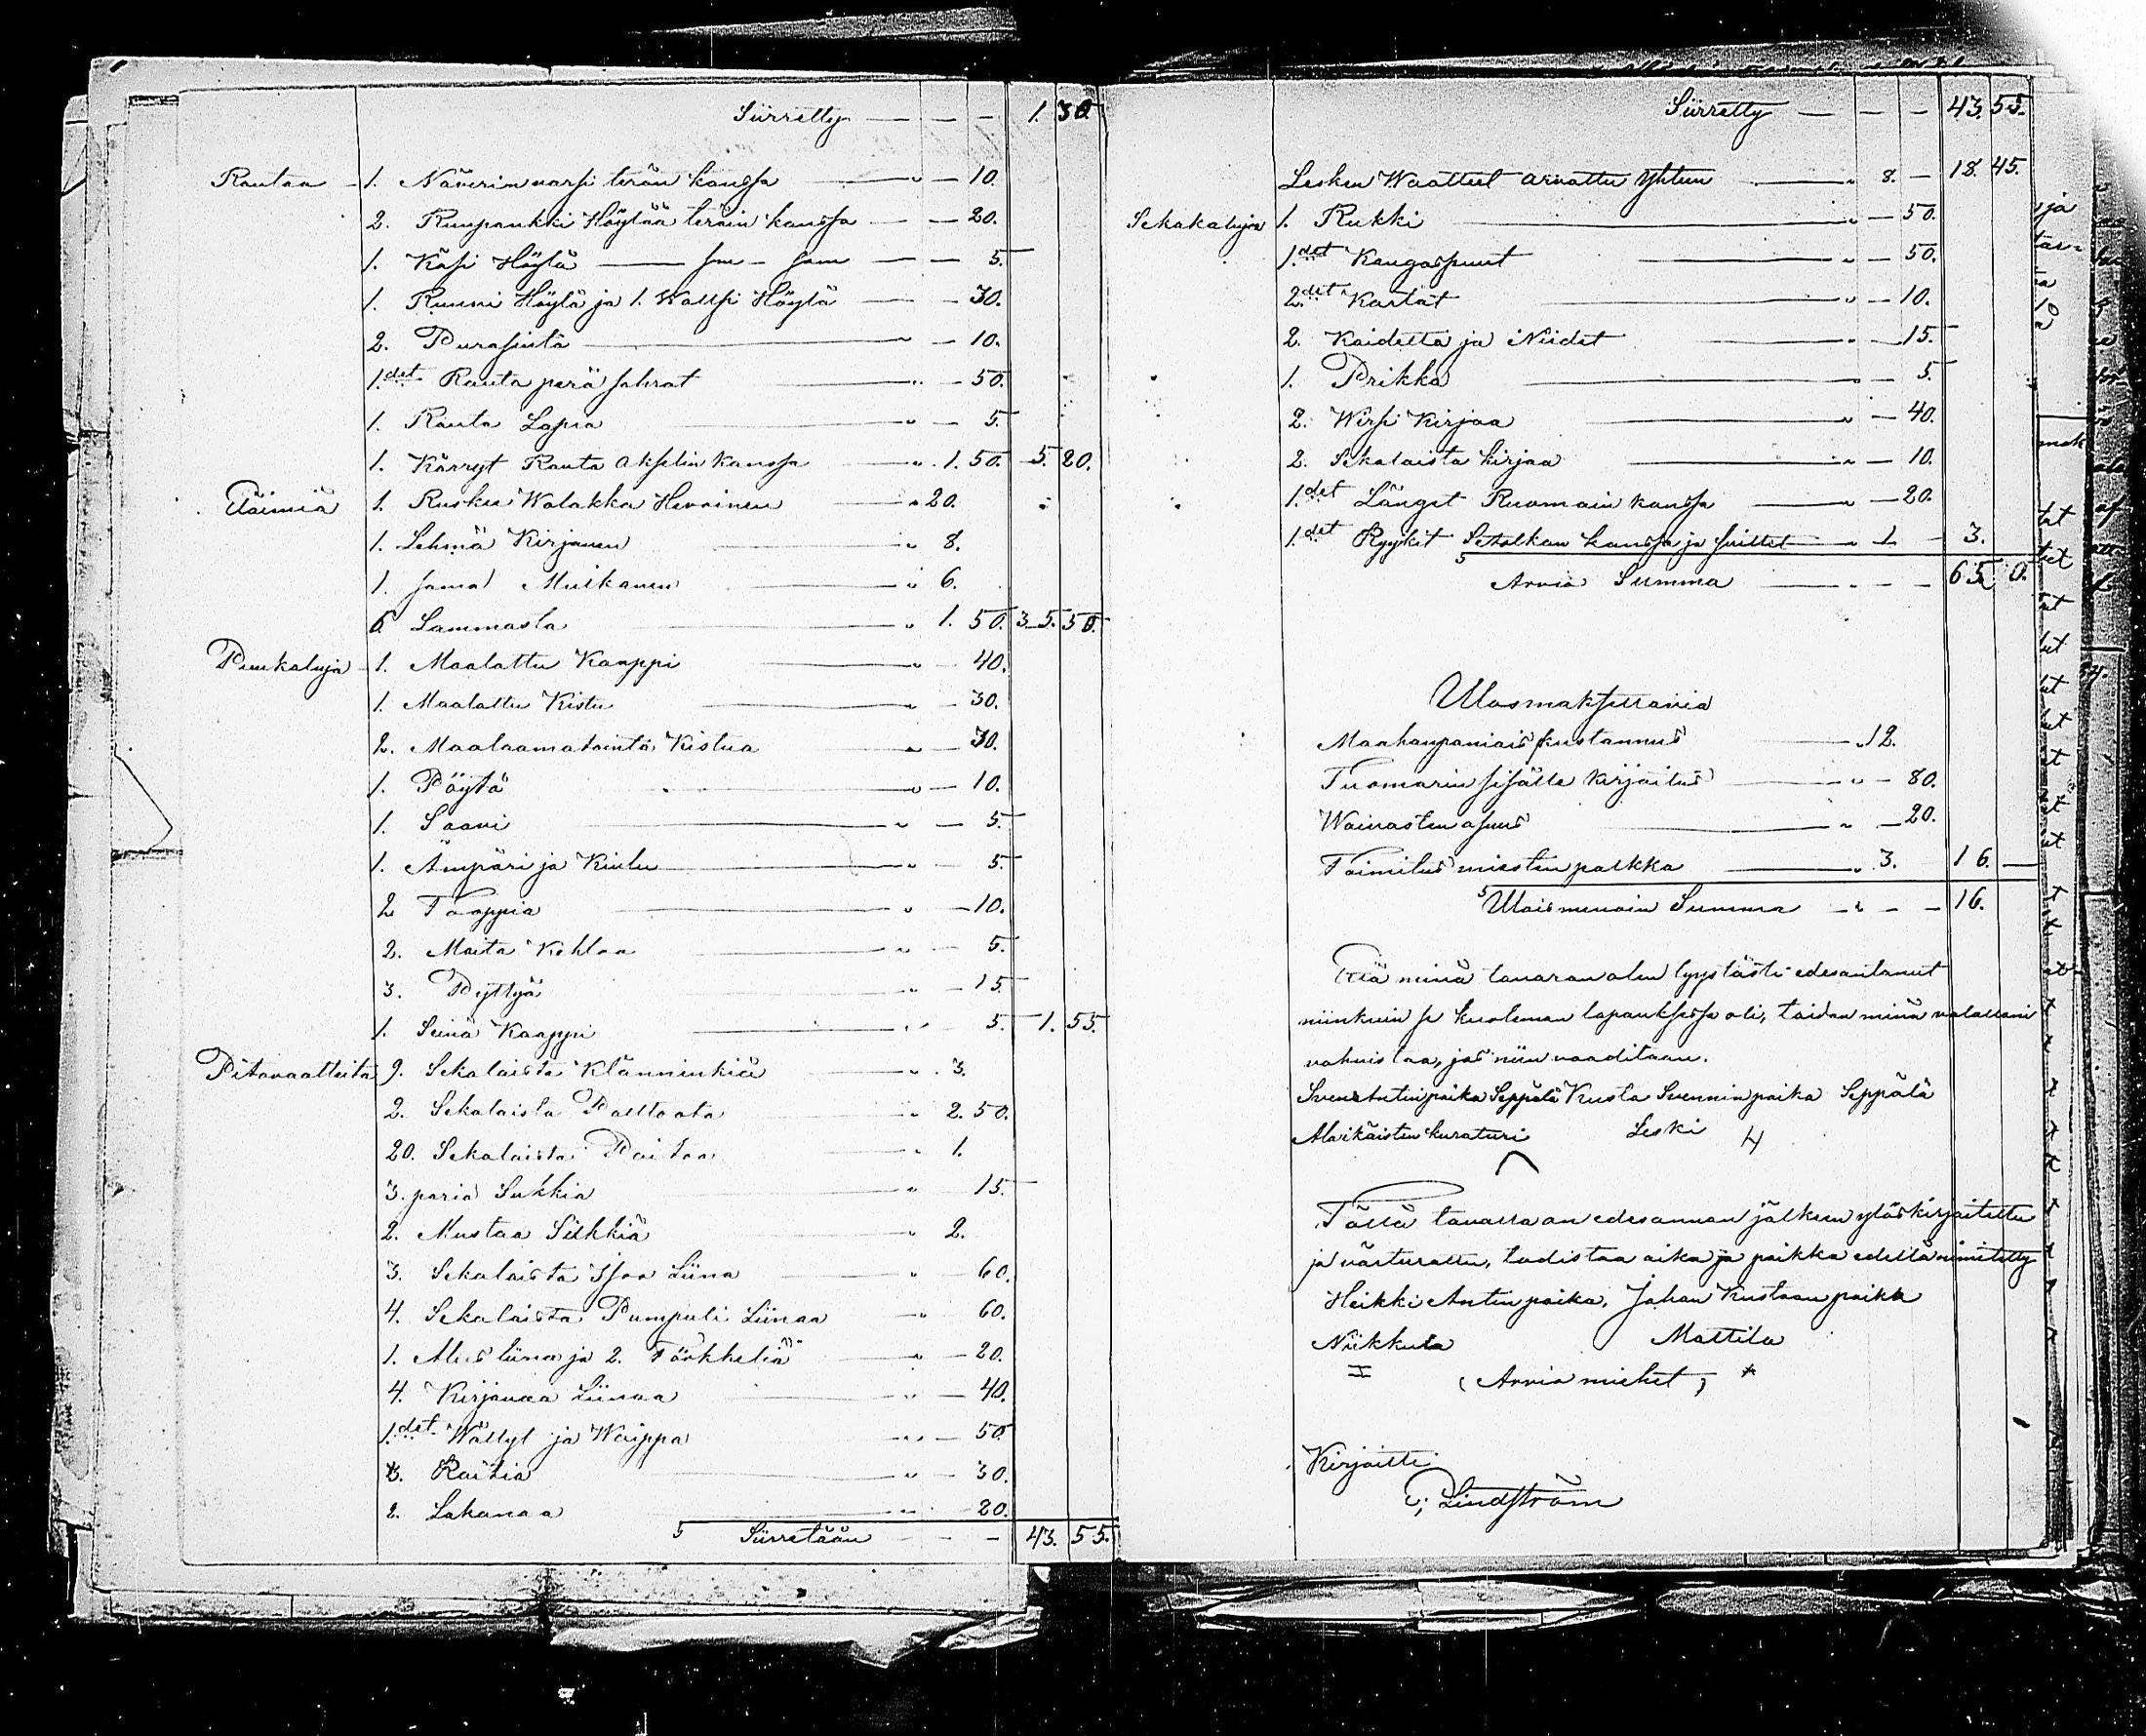 Siirretty — — — 1. 30.
Rautaa — 1. Näverin varsi terän kanssa — " — 10.
2. Ruupankki Höylää teräin kanssa — — 20.
1. Käsi Höylä — sm — sam — — 5.
1. Ruuni Höylä ja 1. Walssi Höylä — — 30.
2. Purasinta — " — 10.
1.det Rauta perä sahrat — " — 50.
1. Rauta Lapia — " — 5.
1. Kärryt Rauta akselin kanssa — " 1. 50. 5. 20.
Eläimiä 1. Ruskea Walakka Hevoinen — " 20.
1. Lehmä Kirjanen — " 8.
1. sama Muikanen — " 6.
6. Lammasta — " 1. 50. 35. 50.
Puukaluja — 1. Maalattu Kaappi — " — 40.
1. Maalattu Kistu — " — 30.
2. Maalaamatointa Kistua — " — 30.
1. Pöytä — " — 10.
1. Saavi — " — 5.
1. Ämpäri ja Kiulu — " — 5.
2 Tooppia — " — 10.
2. Maito Kehloa — " — 5.
3. Pyttyä — " — 15
1. Seinä Kaappi — " — 5. 1. 55.
Pitovaatteita 9. Sekalaista Klänninkiä — " 3.
2. Sekalaista Palttoota " 2. 50.
20. Sekalaista Paitaa — " 1.
3. paria Sukkia — " 15.
2. Mustaa Silkkiä — " 2.
3. Sekalaista Isoa Liina — " — 60.
4. Sekalaista Pumpuli Liinaa — " 60.
1. Alus liina ja 2. Törkkeliä — " — 20.
4. Kirjavaa Liinaa — " — 40.
1.det Wällyt ja Waippa " — 50.
3. Raitia — " — 30.
2. Lakanaa — " — 20.
S Siirretään — — — 43. 55.
Siirretty — — — 43. 55.
Lesken Waatteet arvattu Yhteen — " 8. — 18. 45.
Sekakaluja 1. Rukki — " — 50.
1.det Kangaspuut — " — 50.
2.det Kartat — " — 10.
2. Kaidetta ja Niidet — " — 15.
1. Prikka — " — 5.
2. Wirsi Kirjaa — " — 40.
2. Sekalaista kirjaa — " — 10.
1.det Länget Ruomain kanssa — " — 20.
1.det Ryykit Setolkan kanssa ja suittet — " 1 — 3.
S Arvio Summa — — — 65. 0.
Ulosmaksettavia
Maahanpaniais kustannus — " 12.
Tuomarin sisälle kirjoitus — " — 80.
Waivasten osuus — " — 20.
Toimitus miesten palkka — " 3. 16. —
S Ulosmenoin Summa — " — — 16.
Että minä tavaran olen lyystästi edesantanut
niinkuin se kuoleman tapauksessa oli, taidan minä valallani
vahvistaa, jos niin vaaditaan.
Sven Antinpoika Seppälä Kusta Svenninpoika Seppälä
Alaikäisten kuraturi Leski
Tällä tavalla on edesannon jälkeen ylöskirjoitettu
ja värteerattu, todistaa aika ja paikka edellä nimitetty
Heikki Antinpoika, Johan Kustaanpoika
Niikkula Mattila
(Arvio miehet)
Kirjoitti
E; Lindström